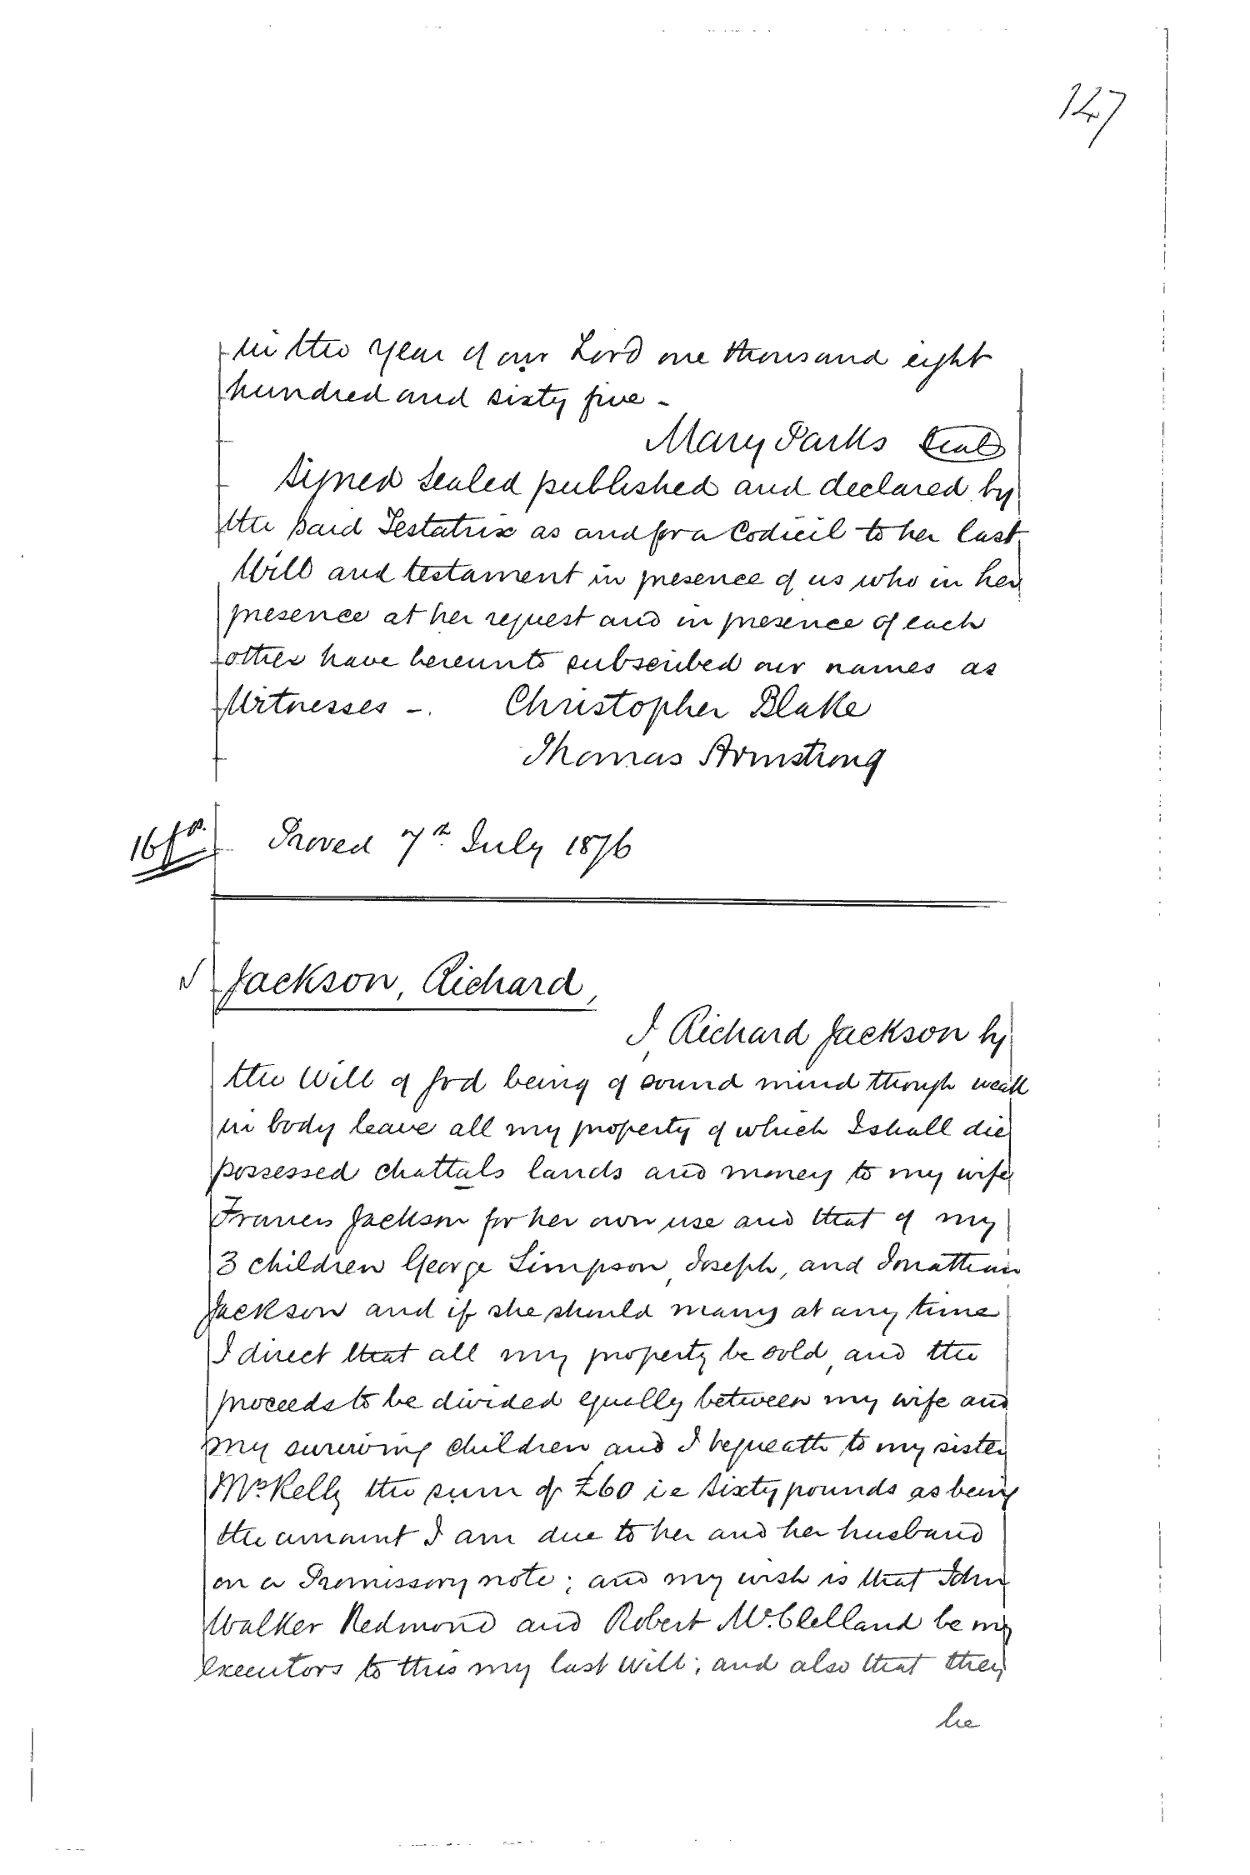 147
in the year of our Lord one thousand eight
hundred and sixty five -
Mary Parks Seal
Signed sealed published and declared by
the said Testatrix as and for a Codicil to her last
Will and testament in presence of us who in her
presence at her request and in presence of each
other have hereunto subscribed our names as
Witnesses -. Christopher Blake
Thomas Armstrong
16 fos. Proved 7th July 1876
Jackson, Richard,
I, Richard Jackson by
the Will of God being of sound mind though weak
in body leave all my property of which I shall die
possessed chattals lands and money to my wife
Frances Jackson for her own use and that of my
3 children George Simpson, Joseph, and Jonathan
Jackson and if she should marry at any time
I direct that all my property be sold, and the
proceeds to be divided equally between my wife and
my surviving children, and I bequeath to my sister
Mrs Kelly the sum of £60 i e sixty pounds as being
the amount I am due to her and her husband
on a Promissory note; and my wish is that John
Walker Redmond and Robert McClelland be my
executors to this my last Will; and also that they
be